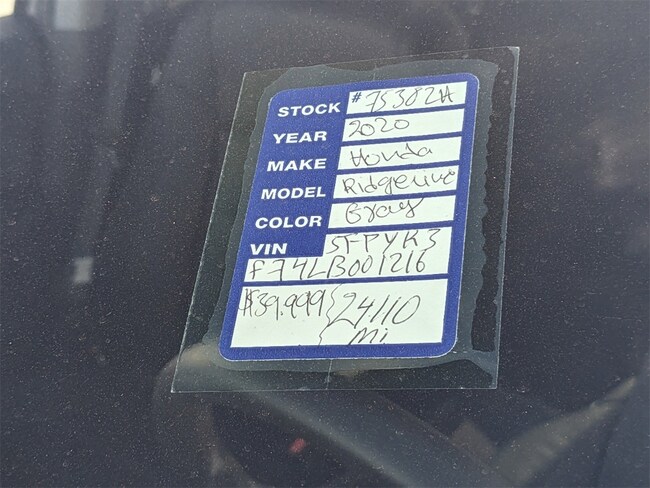 STOCK #7S382A
YEAR 2020
MAKE Honda
MODEL Ridgeline
COLOR Gray
VIN 5FPYK3
F74LB001216
$39.999 24110
Mi